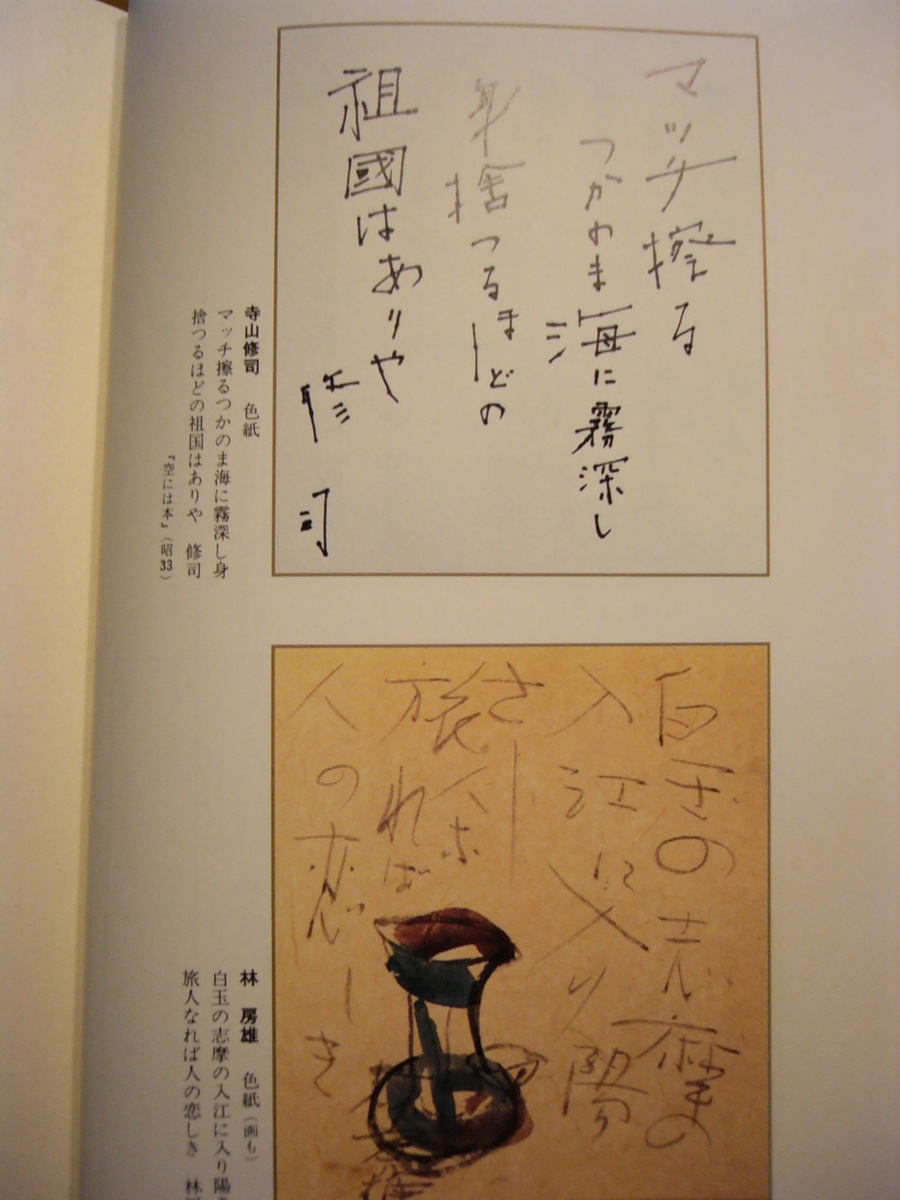 マッチ擦る
つかのま海に霧深し
身捨つるほどの
祖國はありや
修司
寺山修司 色紙
マッチ擦るつかのま海に霧深し身
捨つるほどの祖国はありや 修司
『空には本』(昭33)
白玉の志摩の
入江に入り陽
さし
旅人な
れば
人の恋しき
林 房雄 色紙(画も)
白玉の志摩の入江に入り陽
旅人なれば人の恋しき 林